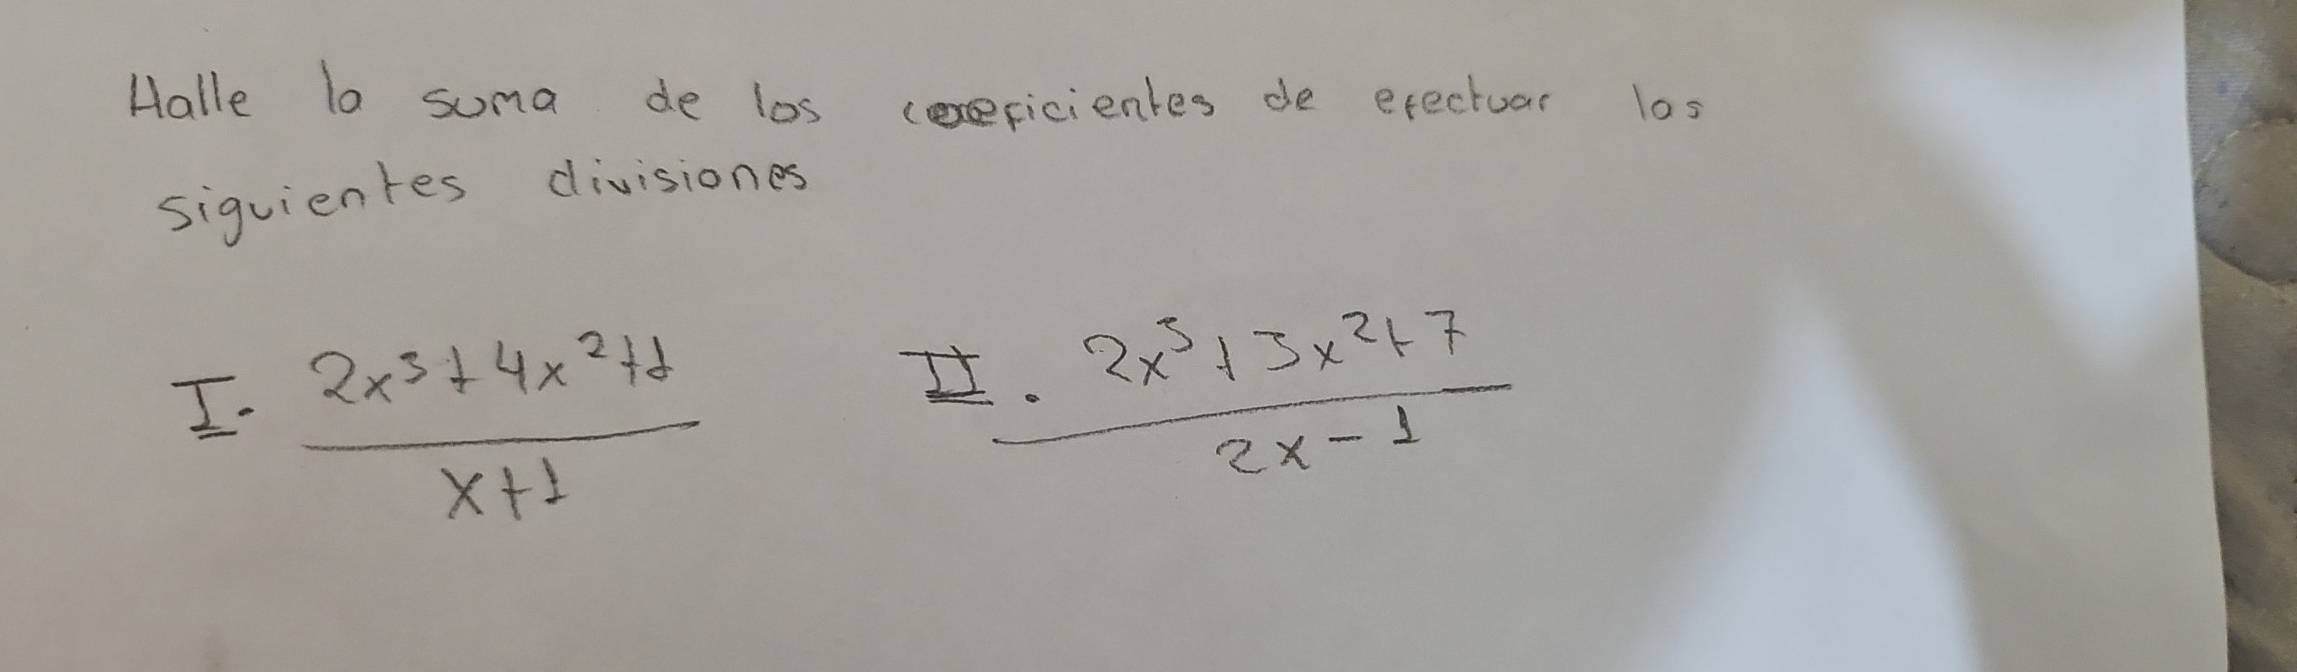 Halle la suma de los coeficientes de efectuar las
siguientes divisiones
I. (2x³+4x²+1)/(x+1)   II. (2x³+3x²+7)/(2x-1)